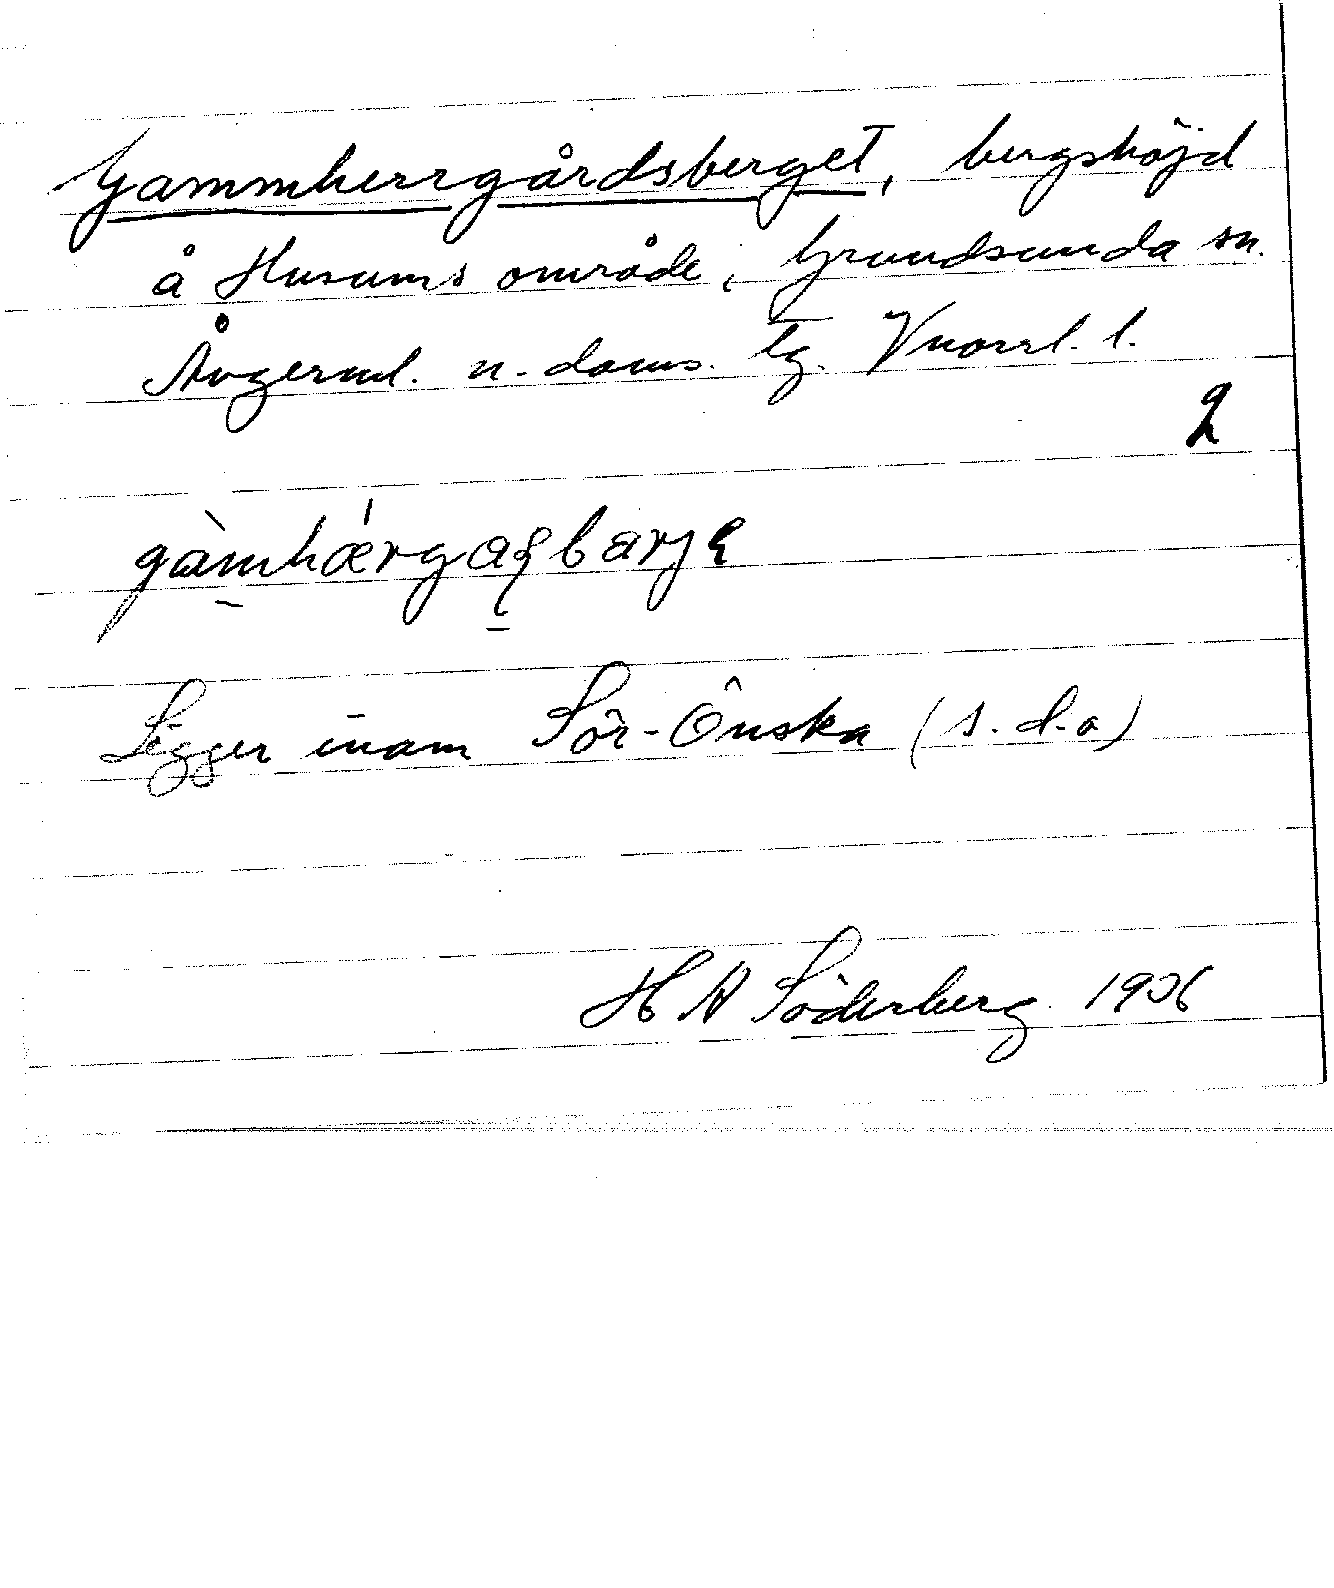 Gammherrgårdsberget, bergshöjd
å Husums område, Grundsunda sn.
Ångerml. n. doms. tg. Vnorrl. l.
2
gàmhǽrgaʂbarjɐ
Ligger inom Sör-Önska (s.d.o)
H A Söderberg 1936